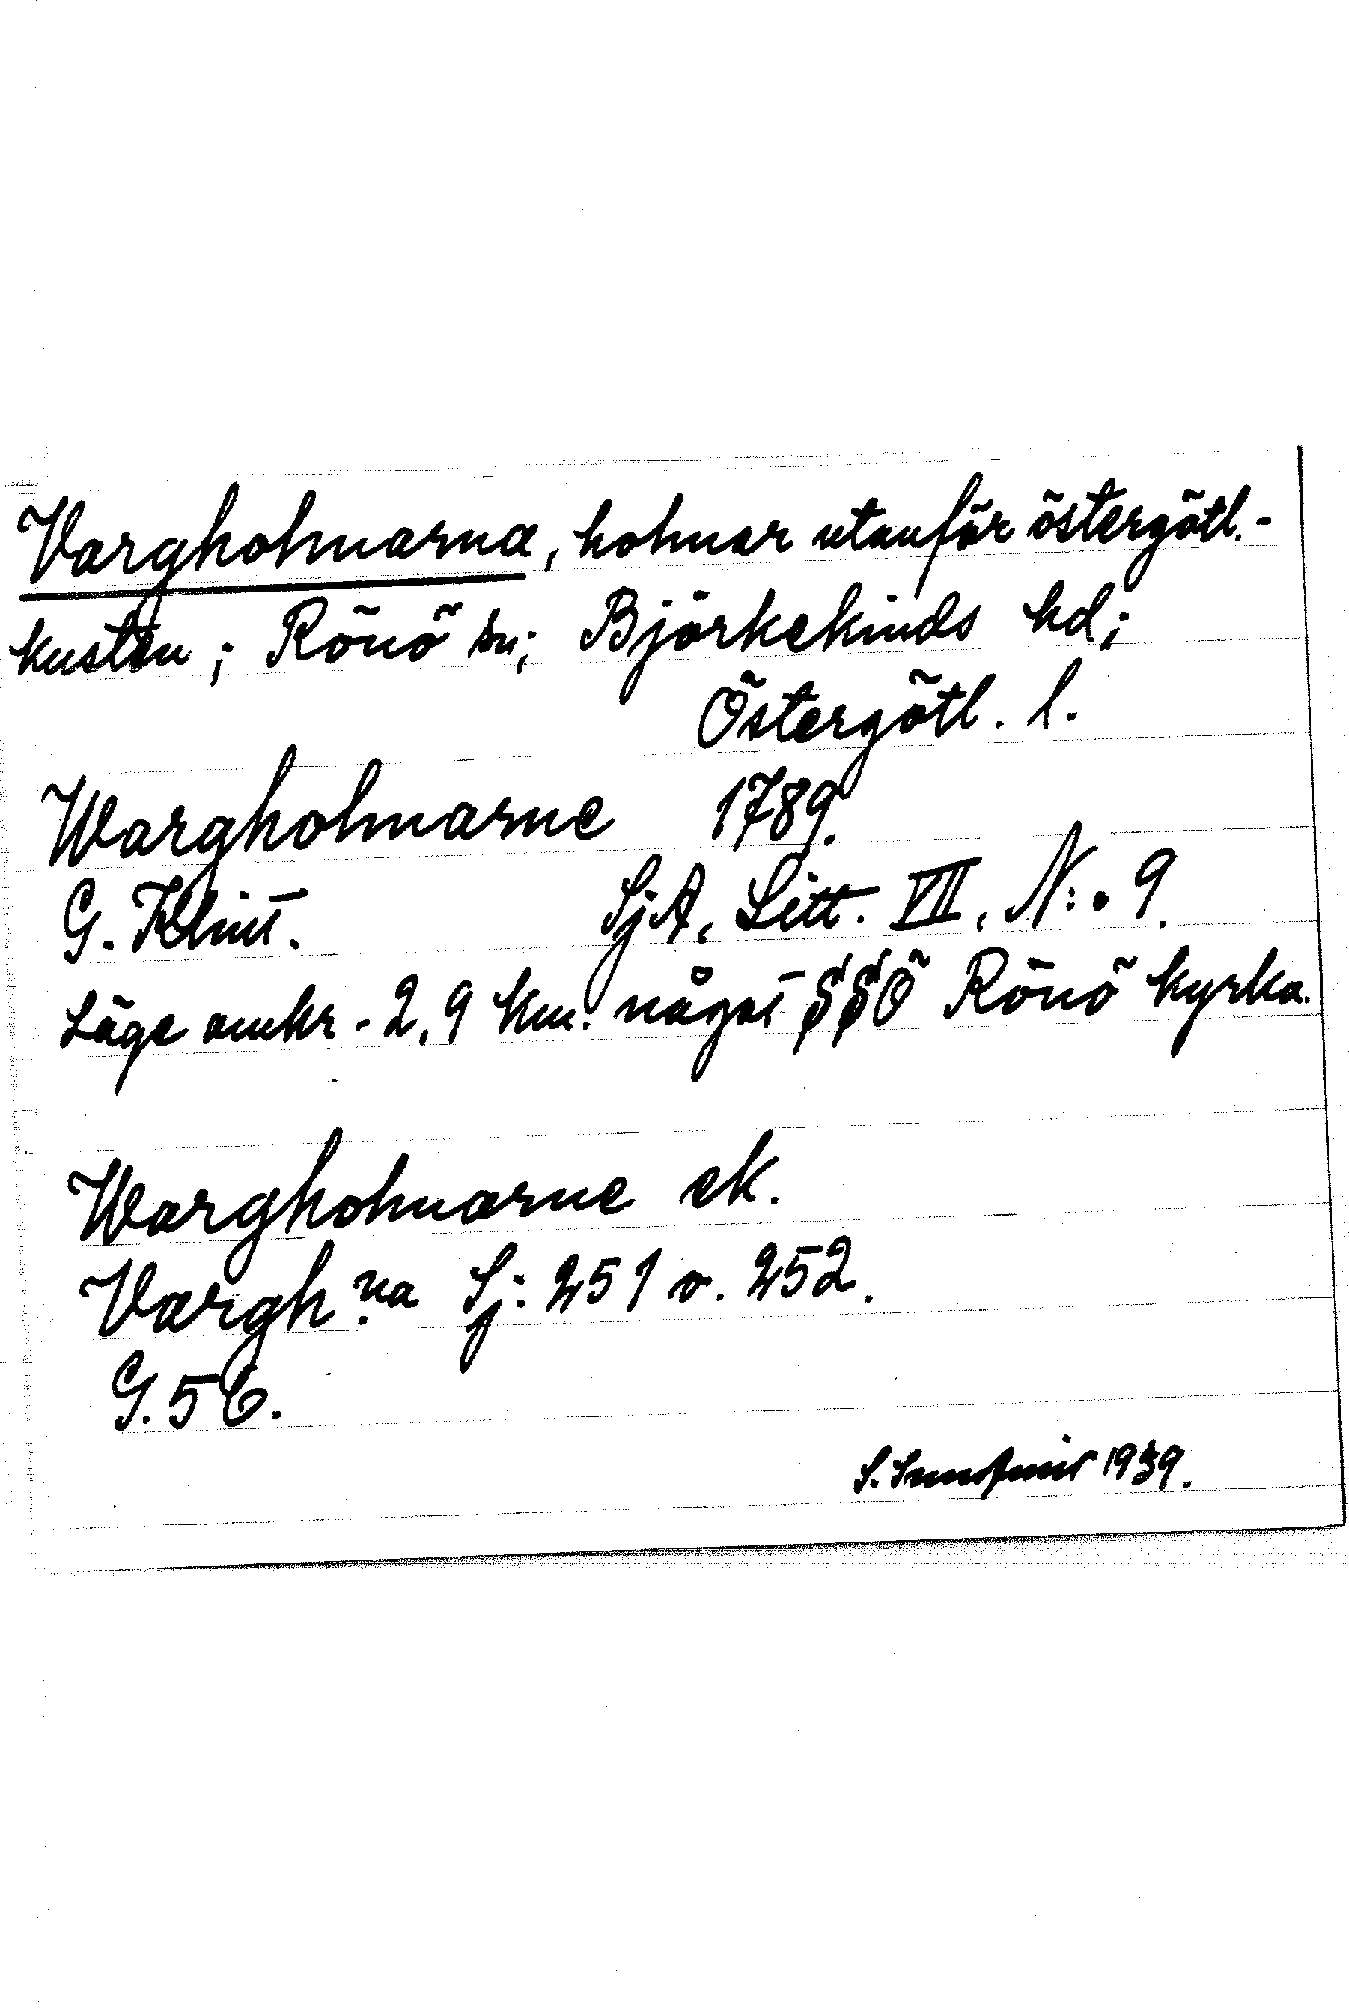 Vargholmarna, holmar utanför östergötl.-
kusten; Rönö sn; Björkekinds hd;
Östergötl. l.
Wargholmarne 1789.
G. Klint. SjA, Litt. VII, N:o 9.
Läge omkr. 2,9 km. något SSÖ Rönö kyrka.
Wargholmarne ek.
Vargh.na Sj: 251 o. 252.
G. 56.
S. 1939.